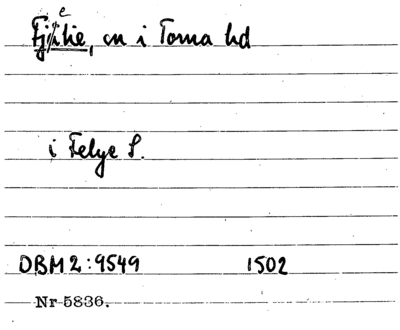 Fjätie, en i Torna hd
i Felge S.
DBM 2:9549 1502
Nr 5836.